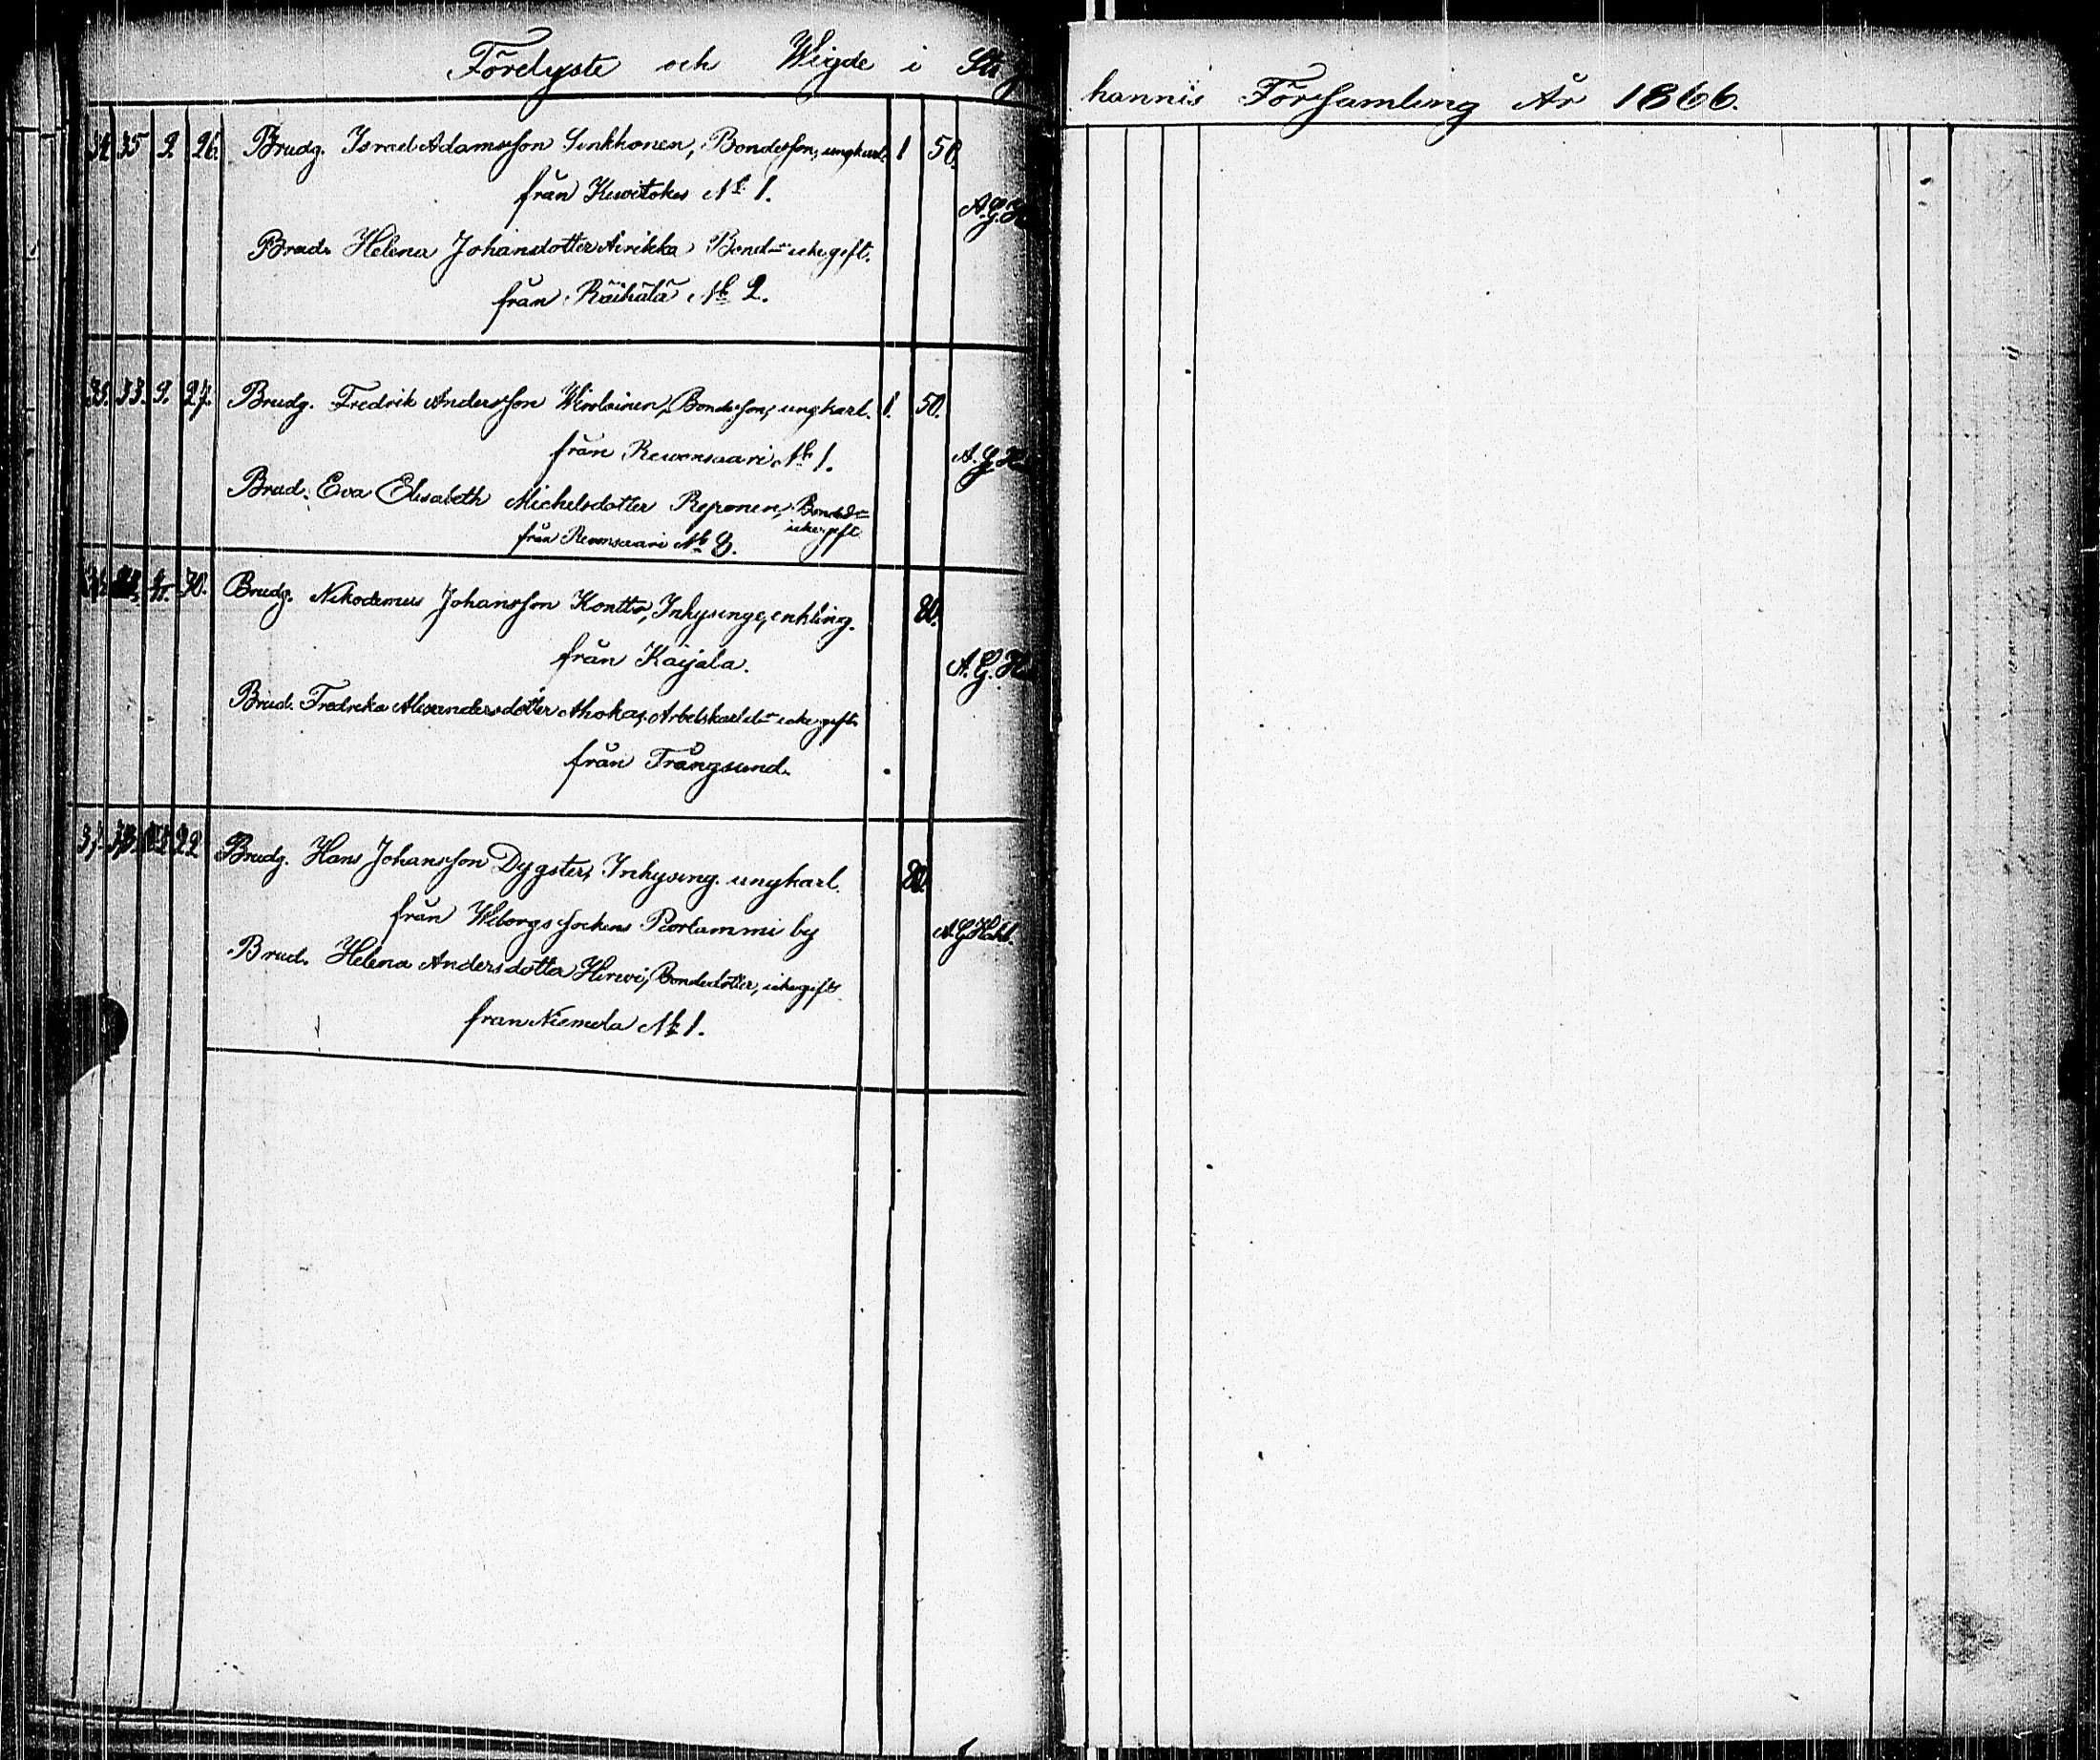 Förelyste och Wigde i Stı J
hannis Församling År 1866.
34 35 9. 26. Brudg. Israel Adamsson Sinkkonen, Bondesson, ungkarl. 1 50.
från Kuoitokes No 1.
A.G.H
Brud. Helena Johansdotter Airikka Bonded:r icke gift.
från Räihälä No 2.
35. 33. 9. 27. Brudg. Fredrik Andersson Wirolainen, Bondesson, ungkarl. 1. 50.
från Rewonsaari No 1.
A.G.H
Brud. Eva Elisabeth Michelsdotter Reponen, Bonded:r
icke gift
från Revonsaari No 8.
30. Brudg. Nikodemus Johansson Kontto, Inhysinge, enkling. 80.
från Kaijala.
A.G.H
Brud. Fredrika Alexandersdotter Ahokas, Arbetskarl d:r icke gift.
från Trångsund.
37. 22 Brudg. Hans Johansson Dygster, Inhysing. ungkarl. 80.
från Wiborgs sockens Porlammi by
A.G.Hahl.
Brud. Helena Andersdotter Hirwi, Bondedotter, icke gift
från Niemelä No 1.